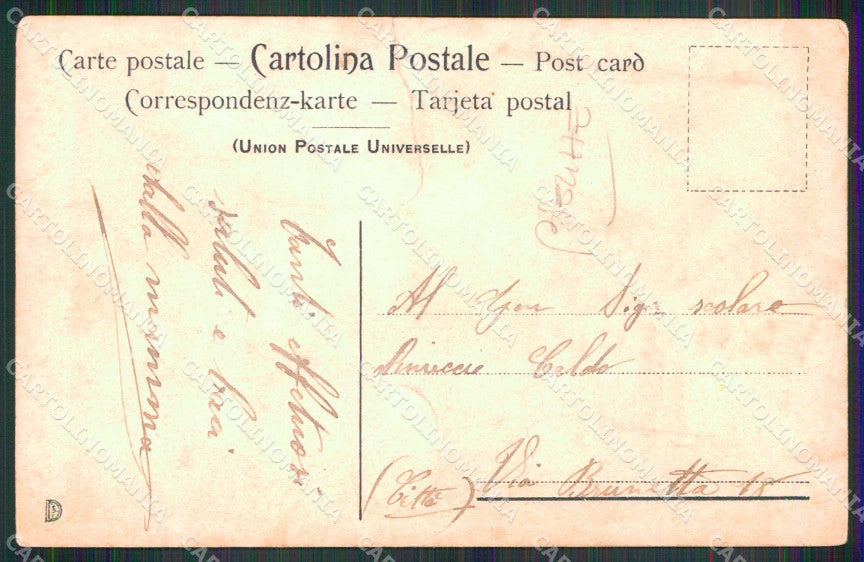 Carte postale — Cartolina Postale — Post card
Correspondenz-karte — Tarjeta postal
(Union Postale Universelle)
Tanti affettuosi
saluti e baci
dalla mamma
Al Gen Sigr scolaro
Caldo
(Città) Via Brunetta 15
CARTOLINOMANIA